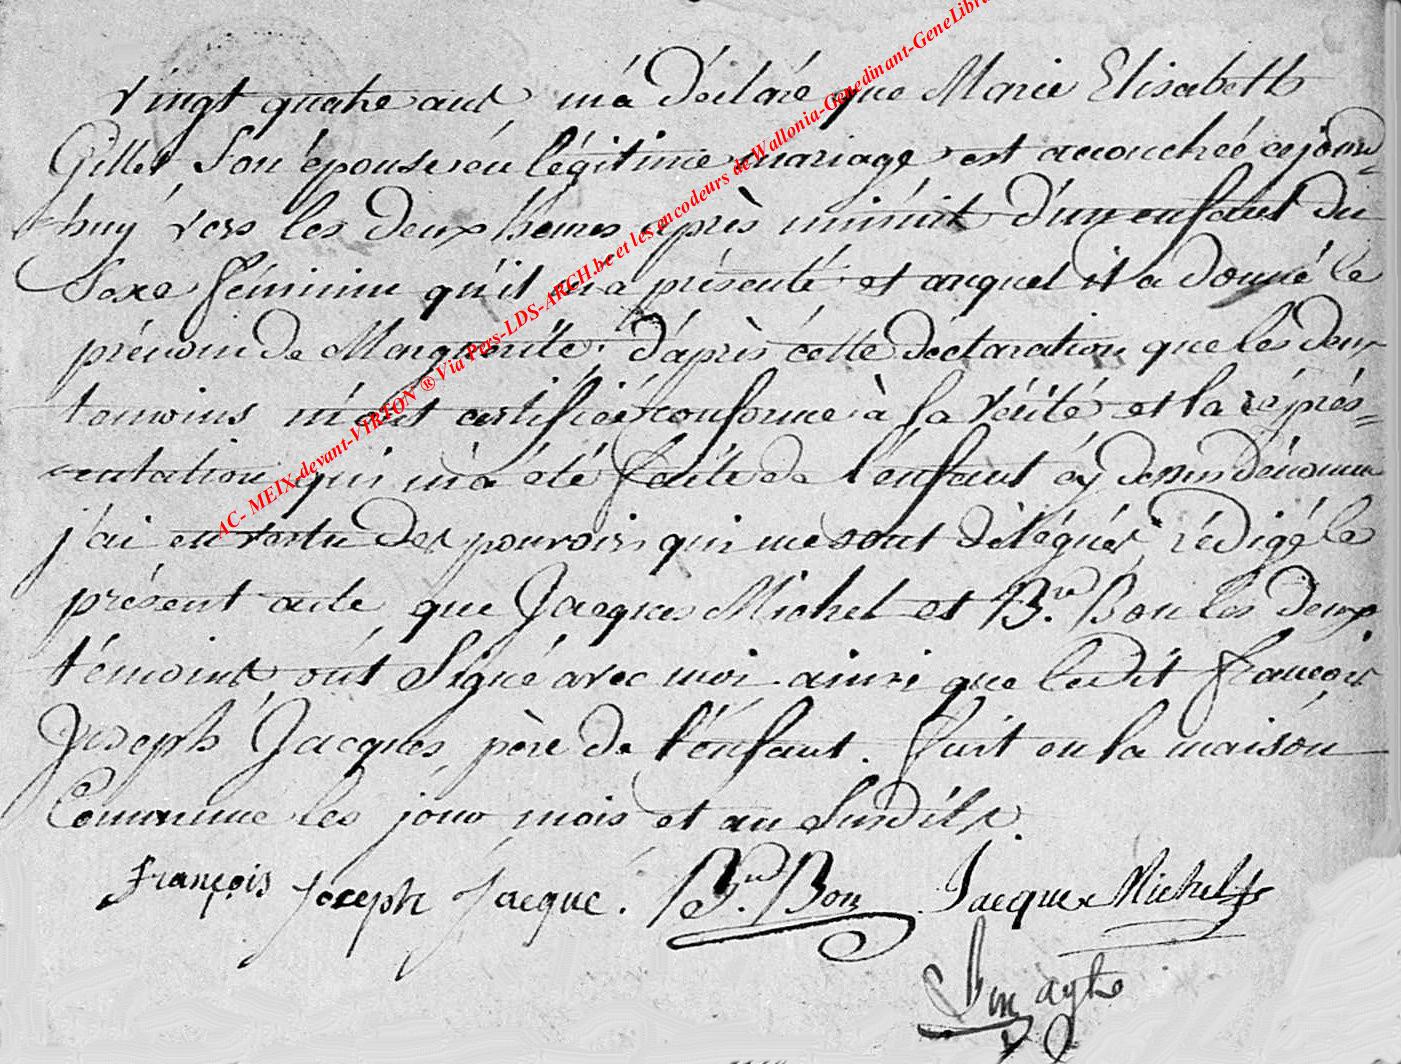 vingt quatre ans m'a déclaré que Marie Elisabeth
Gilles Son épouse én légitime mariage est accouchée cejourd-
huy vers les deux heures après minuit d'un enfant du
Sexe féminin qu'il m'a présenté et auquel il a donné le
prénom de Marguérite. d'après cétte déclaration que lés deux
temoins m'ont certifiée conforme à la vérité et la réprés-
entation qui m'a été faite de l'enfant cy dessus dénommé
j'ai en vertu des pouvoirs qui me sont délégués, rédigé le
présent acte, que Jacques Michel et B.re Bon les deux
témoins ont Signé avec moi ainsi que ledit françois
Joseph Jacques, père de l'enfant. fait en la maison
Commune les jour mois et an Susdits.
françois joseph jacque. B.re Bon Jacque Michel
AC- MEIX-devant-VIRTON ® Via Pers-LDS-ARCH.be et les encodeurs de Wallonia-Genedinant-GeneLibr